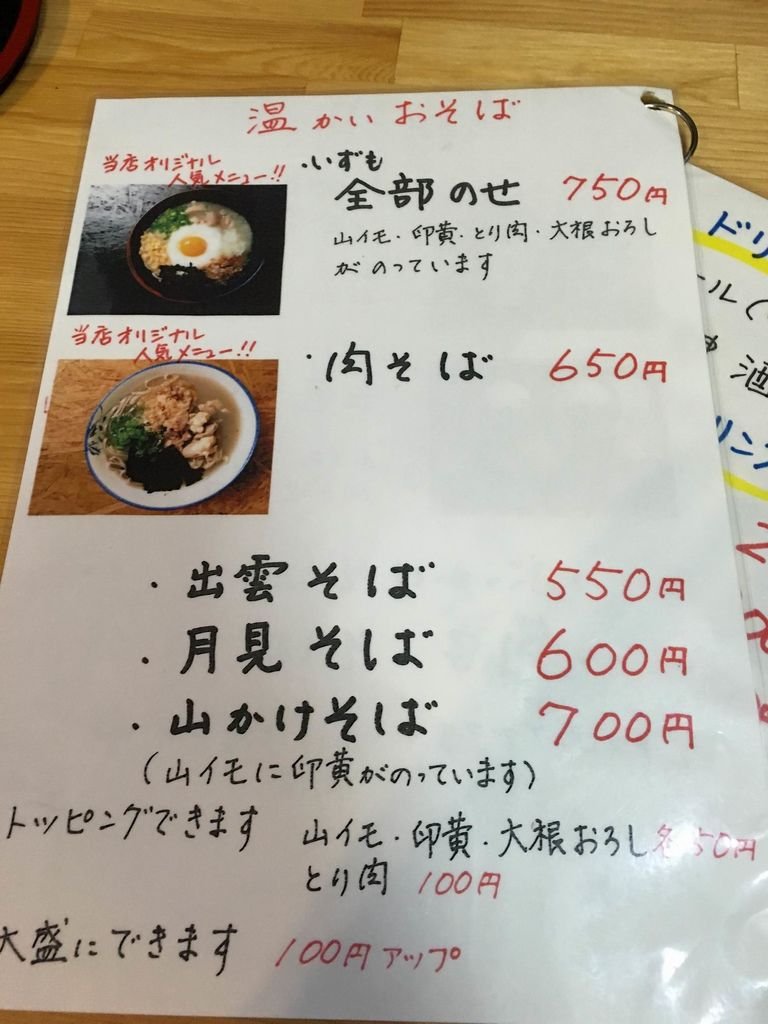 温かいおそば
当店オリジナル
人気メニュー!!
・いずも
全部のせ 750円
山イモ・卵黄・とり肉・大根おろし
がのっています
当店オリジナル
人気メニュー!!
・肉そば 650円
・出雲そば 550円
・月見そば 600円
・山かけそば 700円
(山イモに卵黄がのっています)
トッピングできます
山イモ・卵黄・大根おろし各50円
とり肉 100円
大盛にできます 100円アップ
ドリ
ール(
酒
リンク